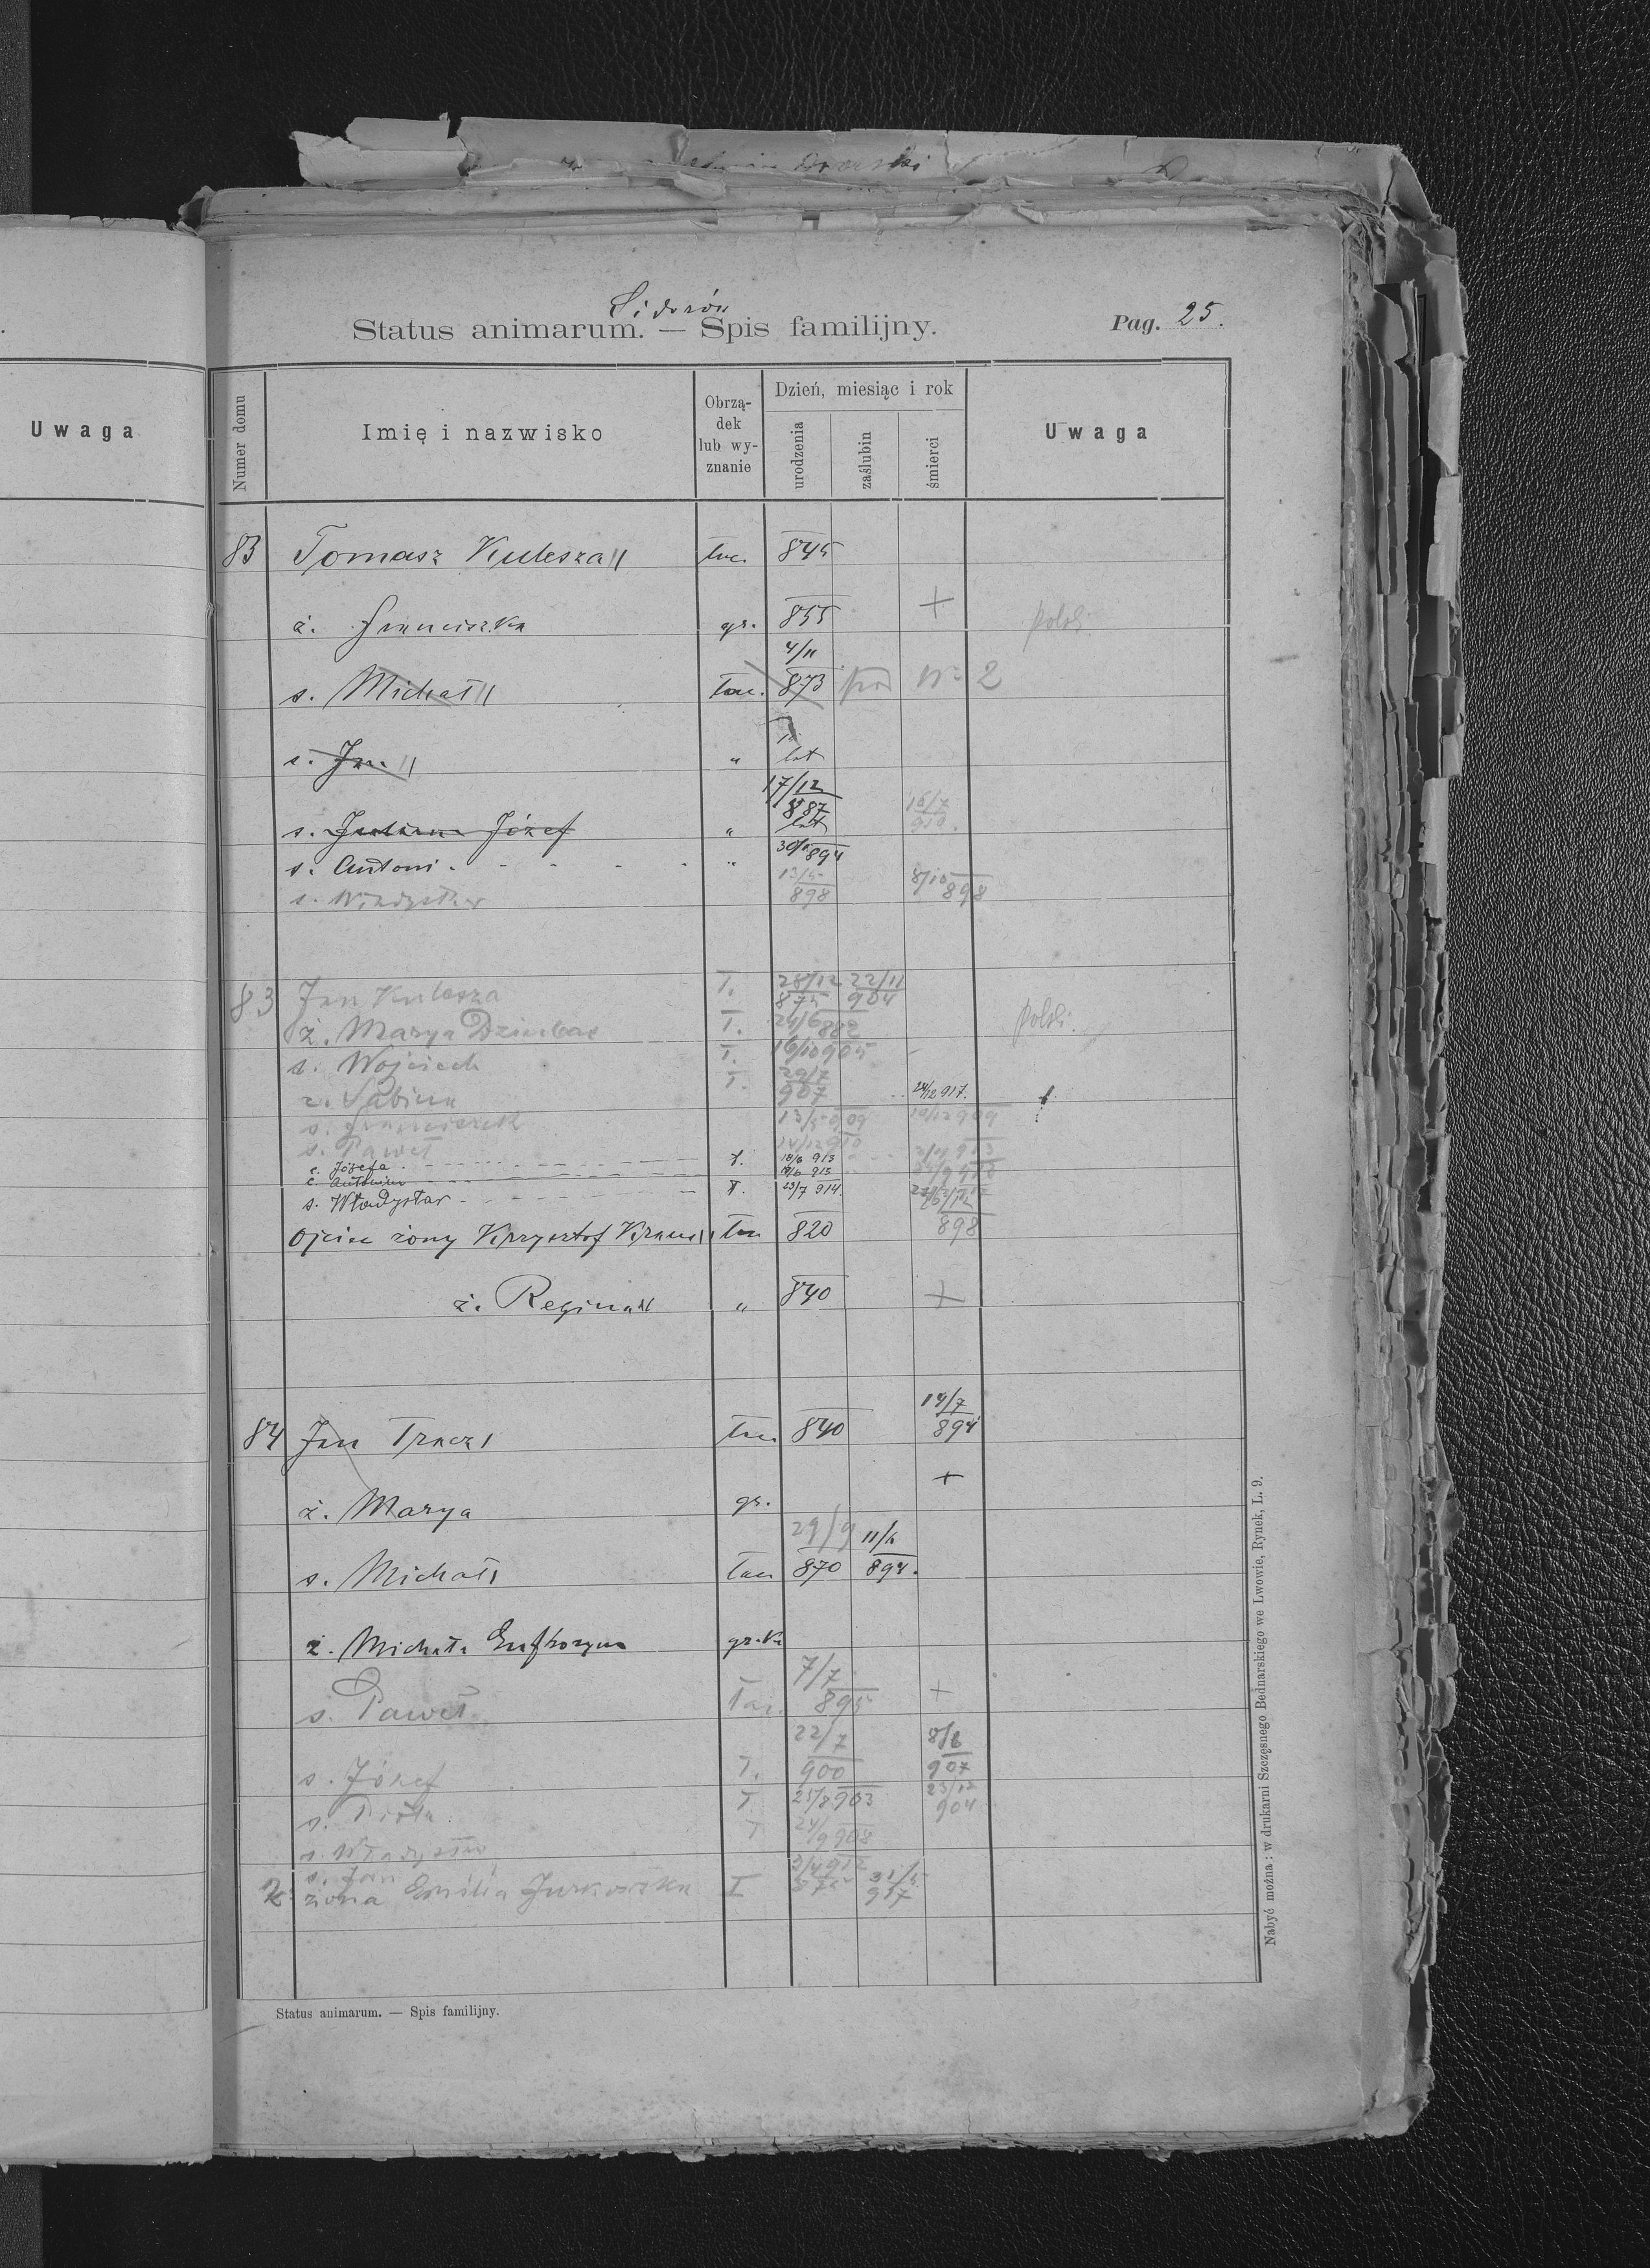 Uwaga
Sidorów
Status animarum. — Spis familijny.
Pag. 25.
Numer domu
Imię i nazwisko
Obrzą-
dek
lub wy-
znanie
Dzień, miesiąc i rok
urodzenia
zaślubin
śmierci
Uwaga
83 Tomasz Kulesza łac. 845
ż. Franciszka gr. 855 +
4/11
s. Michał łac. 873 pod Nr 2
s. Jan " lat
17/12
887 15/7
s. Józef " lat 910
s. Antoni " 894
13/5 8/10
s. Władysław 898 898
83 Jan Kulesza T. 28/12 875 22/11 904
ż. Marya T. 24/6 882
s. Wojciech T. 16/10 905
c. Sabina T. 29/7 907 24/12 917.
s. Franciszek 13/5 909 10/12 909
s. Paweł 14/12 910
c. Józefa ł. 18/6 913
c. Antonina 18/6 913
s. Władysław ł. 23/7 914
898
Ojciec żony Krzysztof łac 820
ż. Regina " 840 +
14/7
84 Jan Tracz łac 840 894
+
ż. Marya gr.
29/9 11/6
s. Michał łac 870 894.
ż. Michała Eufrozyna gr. k.
7/7
s. Paweł łac. 895 +
22/7 8/6
s. Józef T. 900 907
23/12
s. Piotr T. 25/8 903 904
s. Władysław T 24/9 908
s. Jan 3/4 912
żona Emilia Jurkowska T 917
Status animarum. — Spis familijny.
Nabyć można: w drukarni Szczęsnego Bednarskiego we Lwowie, Rynek, L. 9.